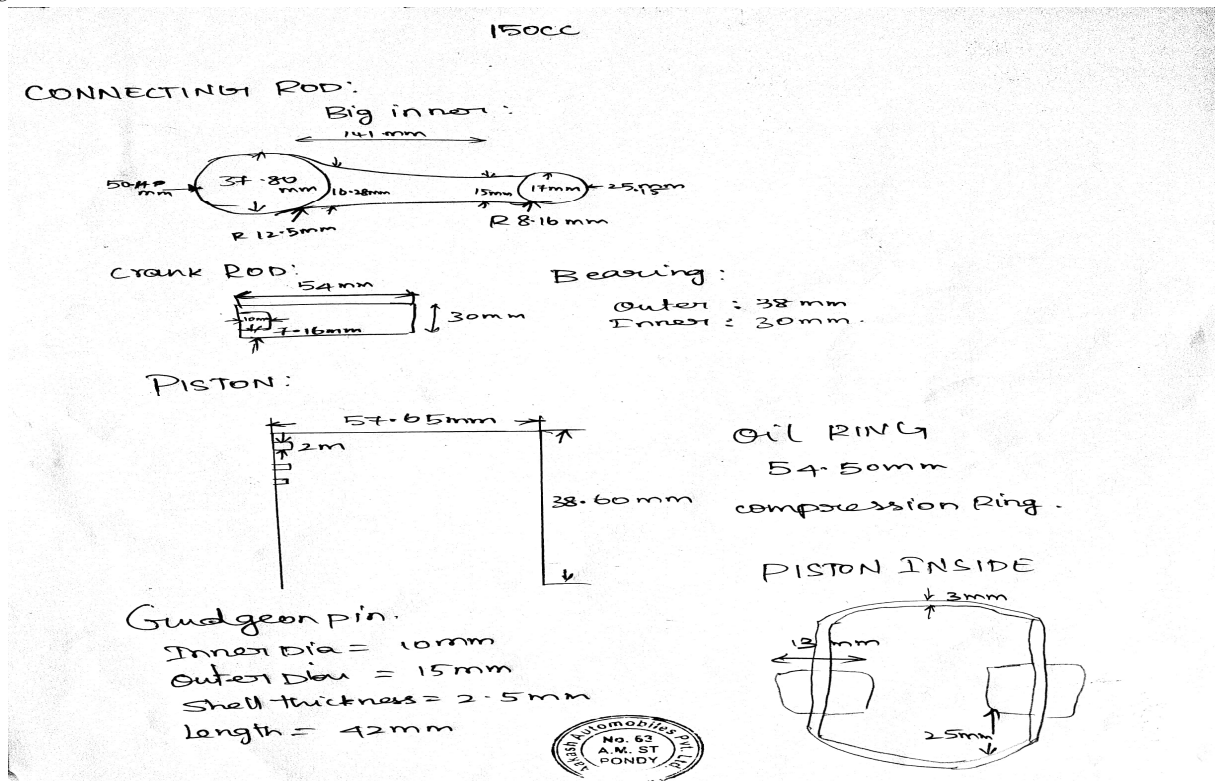 150CC
CONNECTING ROD:
Big inner :
141 mm
37.80 mm
16.28mm
15mm
17mm
R 12.5mm
R 8.16 mm
Crank ROD:
54 mm
10mm
7.16mm
30mm
Bearing :
Outer : 38 mm
Inner : 30mm.
PISTON:
57.65mm
2m
38.60 mm
Oil RING
54.50mm
compression Ring.
PISTON INSIDE
3mm
13 mm
25mm
Gudgeon pin.
Inner Dia = 10mm
Outer Dia = 15mm
Shell thickness = 2.5mm
Length = 42mm
Aakash Automobiles Pvt. Ltd
No. 63
A.M. ST
PONDY